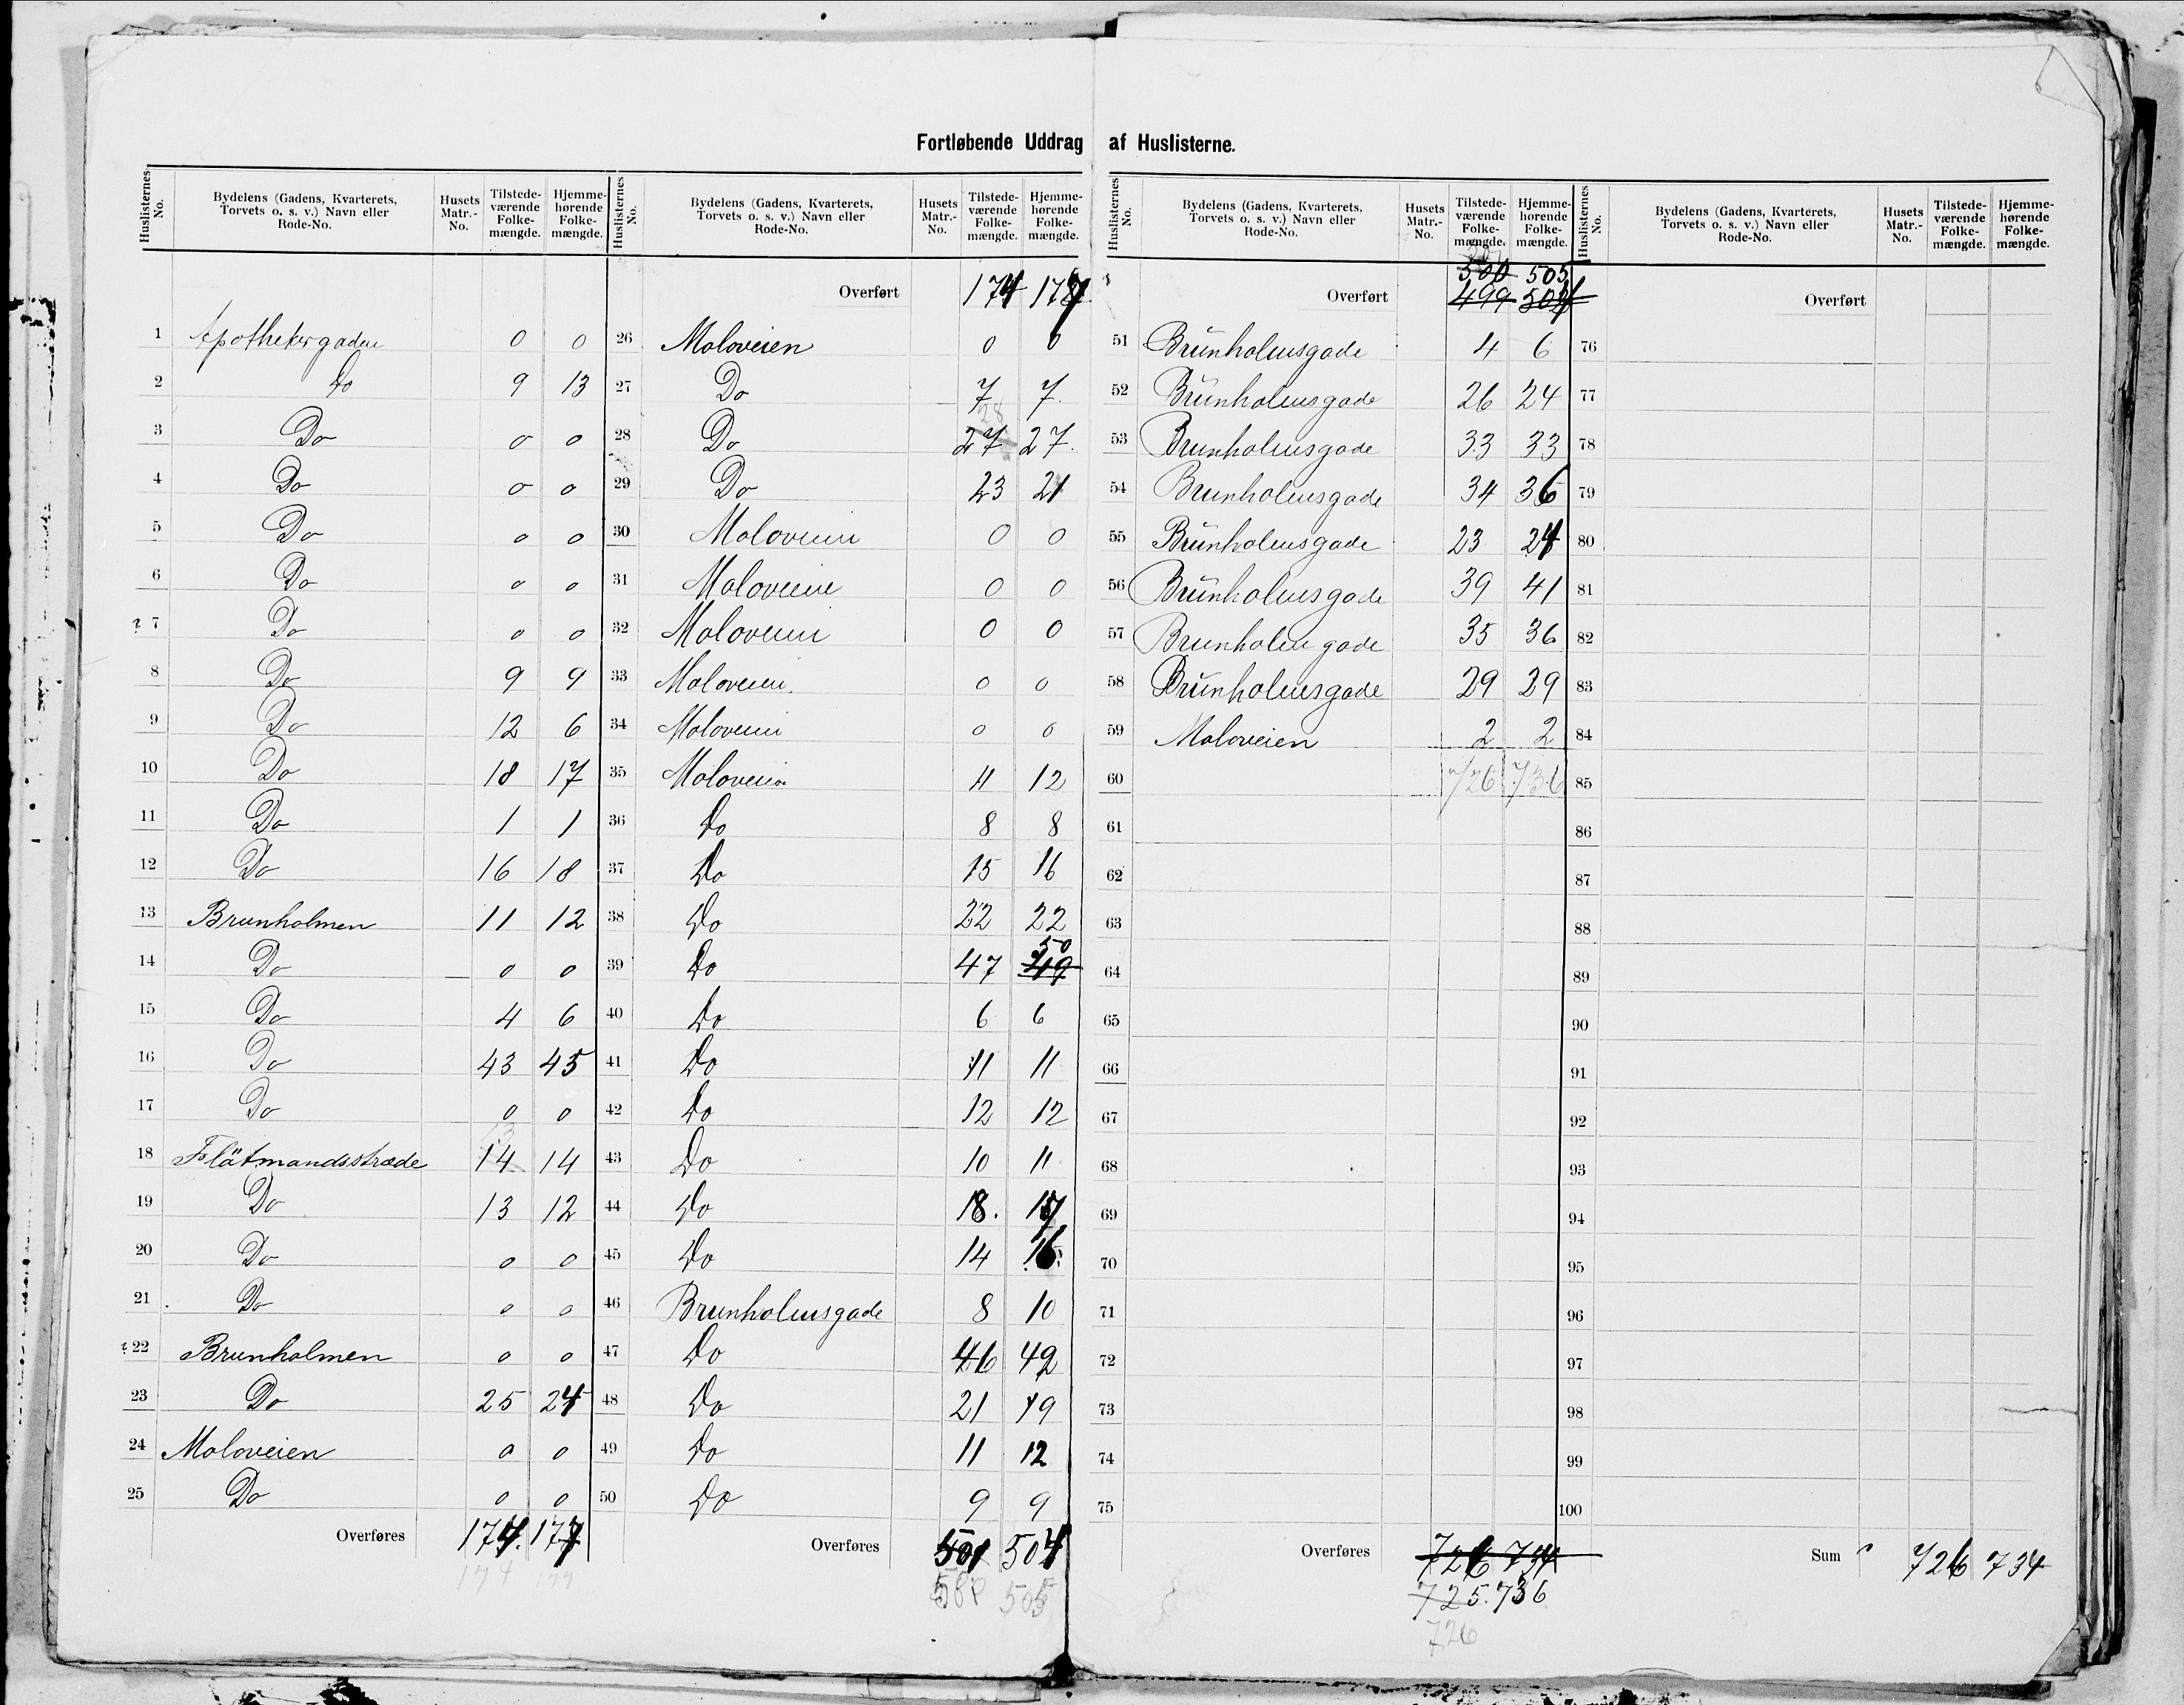 Fortløbende Uddrag af Huslisterne.
Huslisternes No. Bydelens (Gadens, Kvarterets, Torvets o. s. v.) Navn eller Rode-No. Husets Matr.-No. Tilstede-værende Folke-mængde. Hjemme-hørende Folke-mængde.
1 Apothekergaden 0 0
2 Do 9 13
3 Do 0 0
4 Do 0 0
5 Do 0 0
6 Do 0 0
7 Do 0 0
8 Do 9 9
9 Do 12 6
10 Do 18 17
11 Do 1 1
12 Do 16 18
13 Brunholmen 11 12
14 Do 0 0
15 Do 4 6
16 Do 43 45
17 Do 0 0
18 Flåtmandsstræde 13 14 14
19 Do 13 12
20 Do 0 0
21 Do 0 0
22 Brunholmen 0 0
23 Do 25 24
24 Moloveien 0 0
25 Do 0 0
Overføres 174. 177
174 177
Huslisternes No. Bydelens (Gadens, Kvarterets, Torvets o. s. v.) Navn eller Rode-No. Husets Matr.-No. Tilstede-værende Folke-mængde. Hjemme-hørende Folke-mængde.
Overført 174 177
26 Moloveien 0 0
27 Do 7 7.
28 Do 28 27 27.
29 Do 23 21
30 Moloveien 0 0
31 Moloveien 0 0
32 Moloveien 0 0
33 Moloveien. 0 0
34 Moloveien 0 0
35 Moloveien 11 12
36 Do 8 8
37 Do 15 16
38 Do 22 22
39 Do 47 50 49
40 Do 6 6
41 Do 11 11
42 Do 12 12
43 Do 10 11
44 Do 18. 17
45 Do 14 16
46 Brunholmsgade 8 10
47 Do 46 42
48 Do 21 19
49 Do 11 12
50 Do 9 9
Overføres 501 504
505
Huslisternes No. Bydelens (Gadens, Kvarterets, Torvets o. s. v.) Navn eller Rode-No. Husets Matr.-No. Tilstede-værende Folke-mængde. Hjemme-hørende Folke-mængde.
500 505
Overført 499 504
51 Brunholmsgade 4 6
52 Brunholmsgade 26 24
53 Brunholmsgade 33 33
54 Brunholmsgade 34 36
55 Brunholmsgade 23 24
56 Brunholmsgade 39 41
57 Brunholm gade 35 36
58 Brunholmsgade 29 29
59 Moloveien 2 2
60 726 736
61
62
63
64
65
66
67
68
69
70
71
72
73
74
75
Overføres 726 734
725. 736
726
Huslisternes No. Bydelens (Gadens, Kvarterets, Torvets o. s. v.) Navn eller Rode-No. Husets Matr.-No. Tilstede-værende Folke-mængde. Hjemme-hørende Folke-mængde.
Overført
76
77
78
79
80
81
82
83
84
85
86
87
88
89
90
91
92
93
94
95
96
97
98
99
100
Sum 726 734